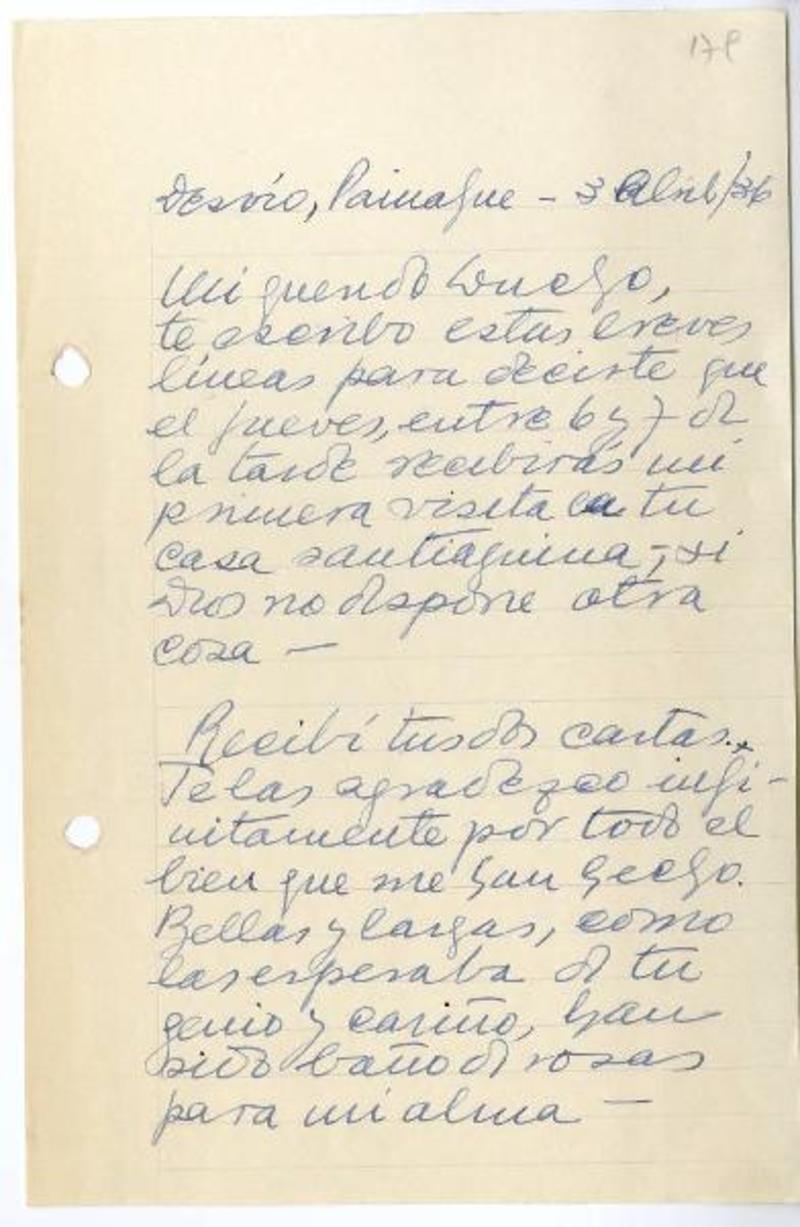 178
Desvío, Painague - 3 Abril/36
Mi querido Diucho,
te escribo estas breves
líneas para decirte que
el jueves, entre 6 y 7 de
la tarde recibirás mi
primera visita a tu
casa santiaguina -, si
Dios no dispone otra
cosa —
Recibí tus dos cartas.
Te las agradezco infi-
nitamente por todo el
bien que me han hecho.
Bellas y largas, como
las esperaba de tu
genio y cariño, han
sido baño de rosas
para mi alma —